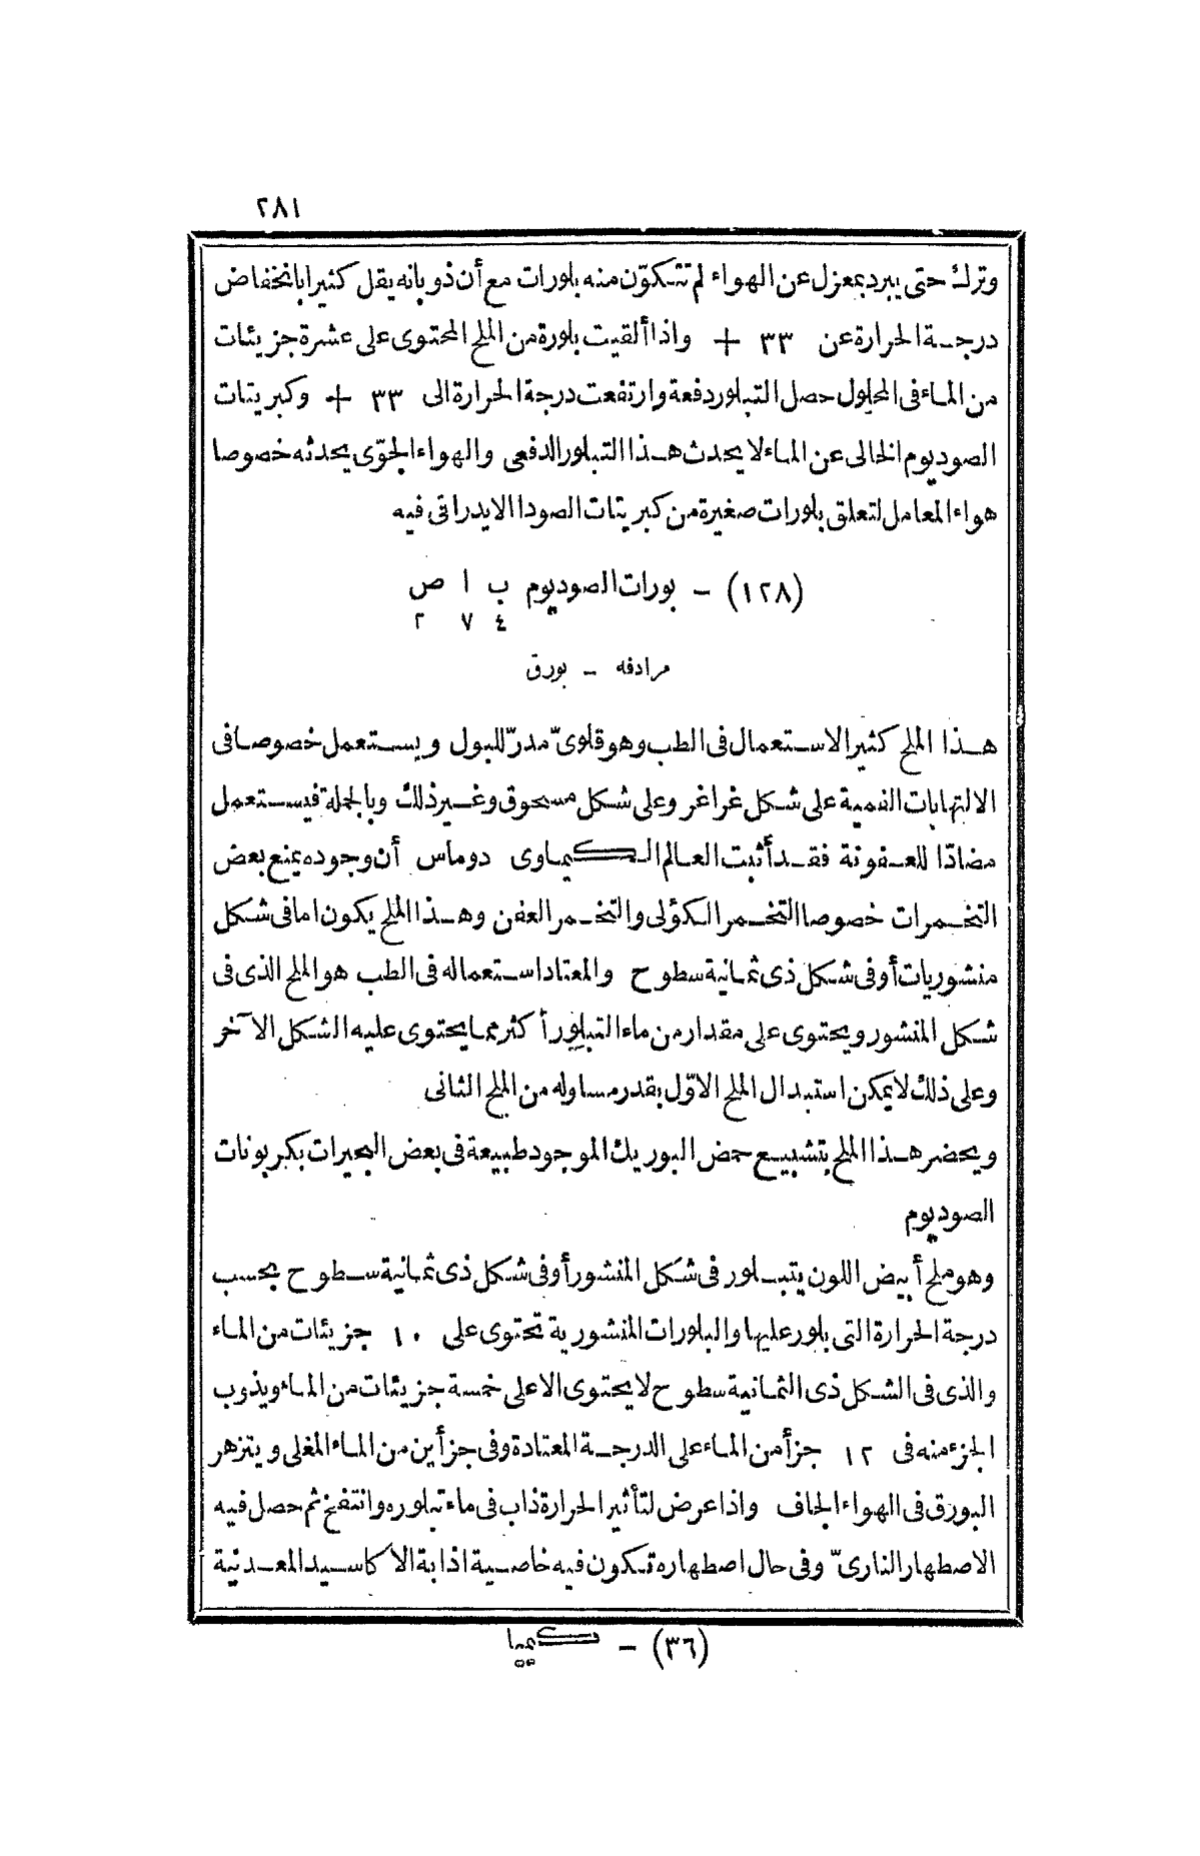 ٢٨١
وترك حتى يبرد بمعزل عن الهواء لم تتكوّن منه بلورات مع أن ذوبانه يقل كثيرا بانخفاض
درجة الحرارة عن ٣٣ + واذا ألقيت بلورة من الملح المحتوى على عشرة جزيئات
من الماء فى المحلول حصل التبلور دفعة وارتفعت درجة الحرارة الى ٣٣ + وكبريتات
الصوديوم الخالى عن الماء لا يحدث هذا التبلور الدفعى والهواء الجوّى يحدثه خصوصا
هواء المعامل لتعلق بلورات صغيرة من كبريتات الصودا الايدراتى فيه
(١٢٨) - بورات الصوديوم ب ا ص
٤ ٧ ٢
مرادفه - بورق
هذا الملح كثير الاستعمال فى الطب وهو قلوىّ مدرّ للبول ويستعمل خصوصا فى
الالتهابات الفمية على شكل غراغر وعلى شكل مسحوق وغير ذلك وبالجملة فيستعمل
مضادّا للعفونة فقد أثبت العالم الكيماوى دوماس أن وجوده يمنع بعض
التخمرات خصوصا التخمر الكؤلى والتخمر العفن وهذا الملح يكون اما فى شكل
منشوريات أو فى شكل ذى ثمانية سطوح والمعتاد استعماله فى الطب هو الملح الذى فى
شكل المنشور ويحتوى على مقدار من ماء التبلور أكثر مما يحتوى عليه الشكل الآخر
وعلى ذلك لا يمكن استبدال الملح الاوّل بقدر مساو له من الملح الثانى
ويحضر هذا الملح بتشبيع حمض البوريك الموجود طبيعة فى بعض البحيرات بكربونات
الصوديوم
وهو ملح أبيض اللون يتبلور فى شكل المنشور أو فى شكل ذى ثمانية سطوح بحسب
درجة الحرارة التى بلور عليها والبلورات المنشورية تحتوى على ١٠ جزيئات من الماء
والذى فى الشكل ذى الثمانية سطوح لا يحتوى الا على خمسة جزيئات من الماء ويذوب
الجزء منه فى ١٢ جزأ من الماء على الدرجة المعتادة وفى جزأين من الماء المغلى ويتزهر
البورق فى الهواء الجاف واذا عرض لتأثير الحرارة ذاب فى ماء تبلوره وانتفخ ثم حصل فيه
الاصطهار النارىّ وفى حال اصطهاره تكون فيه خاصية اذابة الاكاسيد المعدنية
(٣٦) - كيميا